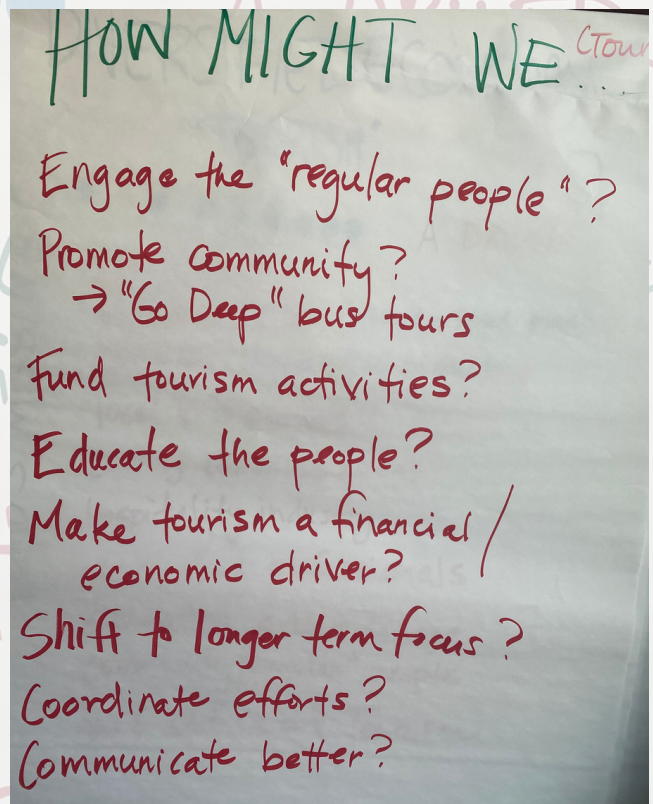 HOW MIGHT WE...
Engage the "regular people"?
Promote community?
→ "Go Deep" bus tours
Fund tourism activities?
Educate the people?
Make tourism a financial /
economic driver?
Shift to longer term focus?
Coordinate efforts?
Communicate better?